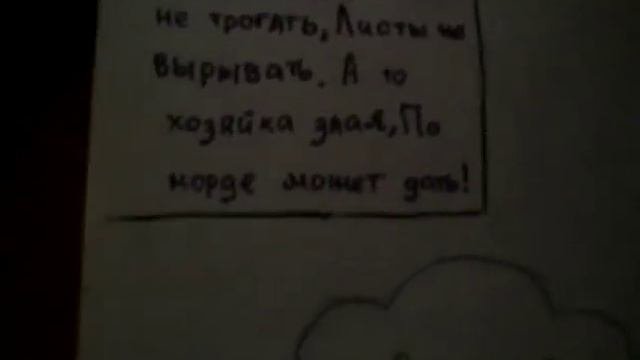 не трогать, Листы не
вырывать. А то
хозяйка злая, По
морде может дать!